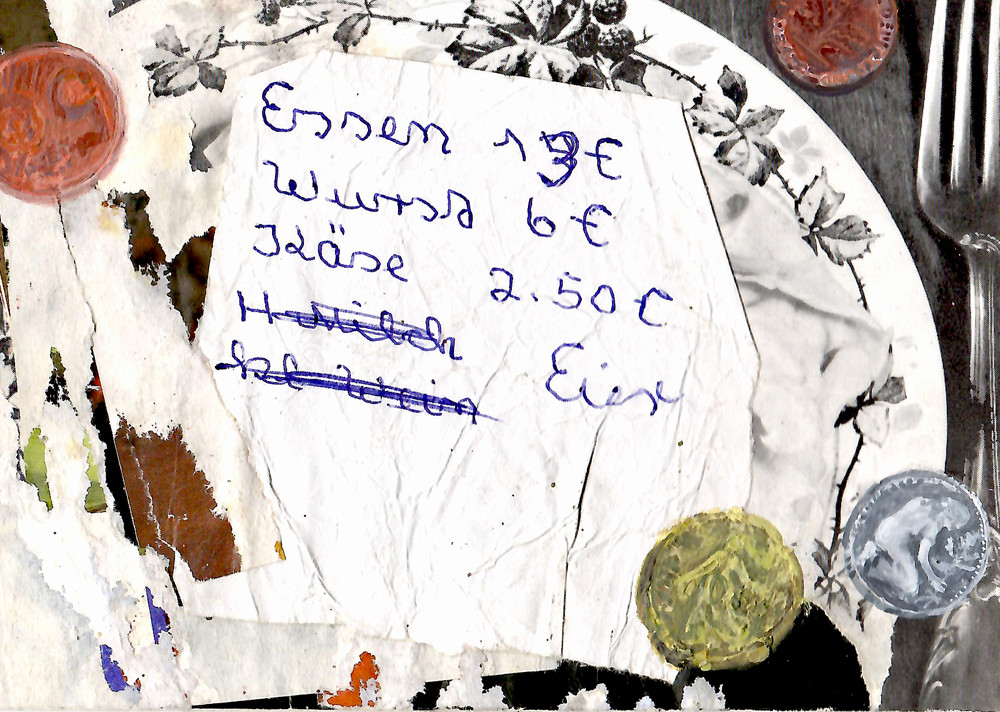 Essen 13€
Wurst 6€
Käse 2.50€
H Milch
kl Wein Eier